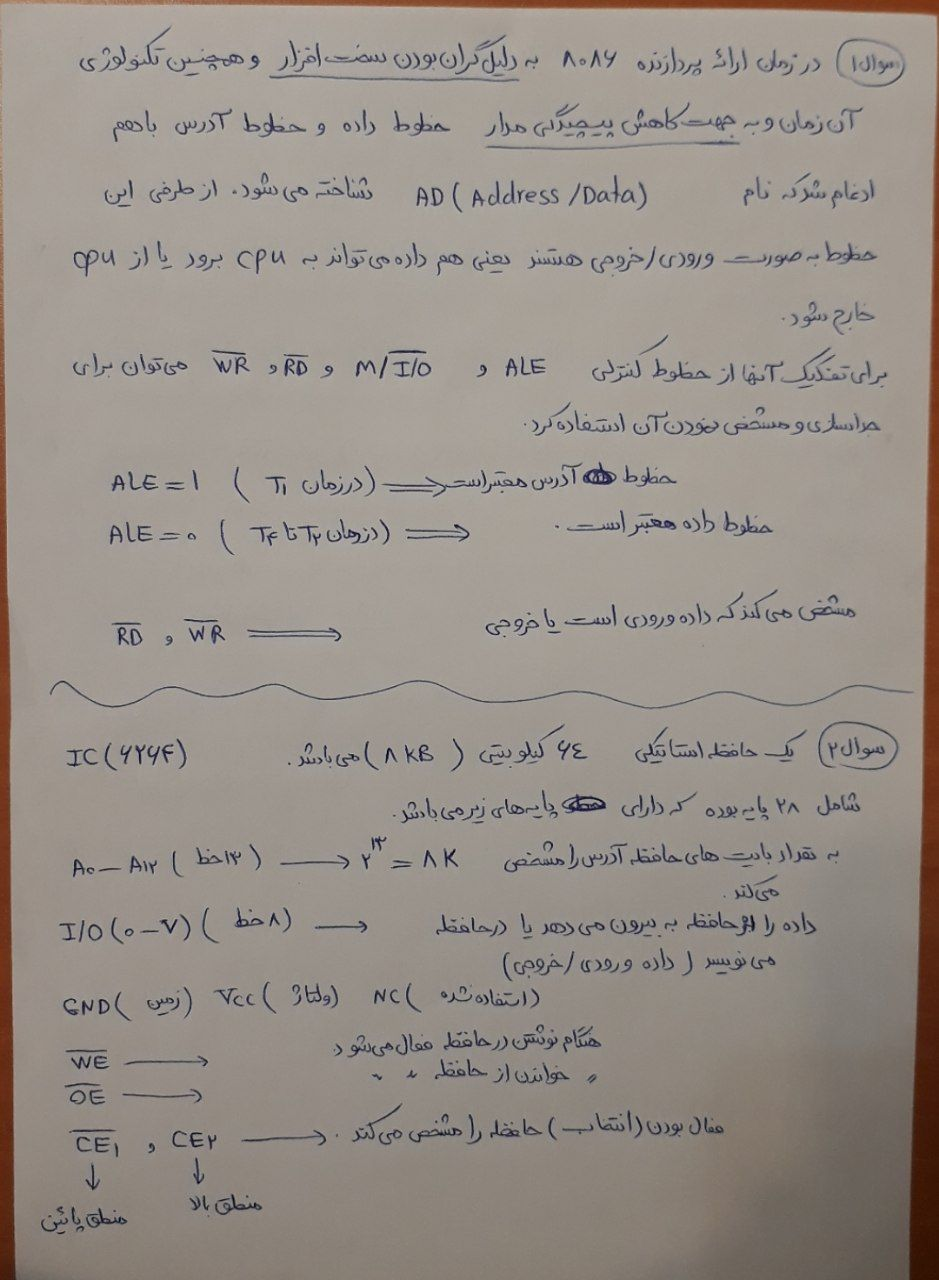 سوال ۱ در زمان ارائه پردازنده ۸۰۸۶ به دلیل گران بودن سخت افزار و همچنین تکنولوژی
آن زمان و به جهت کاهش پیچیدگی مدار خطوط داده و خطوط آدرس باهم
ادغام شد که نام AD (Address/Data) شناخته می شود. از طرفی این
خطوط به صورت ورودی/خروجی هستند یعنی هم داده می تواند به CPU برود یا از CPU
خارج شود.
برای تفکیک آنها از خطوط کنترلی ALE و M/I̅/̅O̅ و R̅D̅ و W̅R̅ می توان برای
جداسازی و مشخص نمودن آن استفاده کرد.
ALE = 1 (در زمان T₁) ⟹ خطوط آدرس معتبر است
ALE = ۰ (در زمان T۲ تا T۴) ⟹ خطوط داده معتبر است.
R̅D̅ و W̅R̅ ⟹ مشخص می کند که داده ورودی است یا خروجی
سوال ۲ یک حافظه استاتیکی ٦٤ کیلو بیتی (۸ KB) می باشد. IC (۶۲۶۴)
شامل ۲۸ پایه بوده که دارای پایه های زیر می باشد.
A۰ – A۱۲ (۱۳ خط) ⟶ ۲^۱۳ = ۸ K به تعداد بایت های حافظه آدرس را مشخص
می کند.
I/O (۰–۷) (۸ خط) ⟶ داده را از حافظه به بیرون می دهد یا در حافظه
می نویسد (داده ورودی/خروجی)
GND (زمین) VCC (ولتاژ) NC (استفاده نشده)
W̅E̅ ⟶ هنگام نوشتن در حافظه فعال می شود.
O̅E̅ ⟶ " خواندن از حافظه " "
C̅E̅₁ و CE۲ ⟶ فعال بودن (انتخاب) حافظه را مشخص می کند.
↓ ↓
منطق پائین منطق بالا